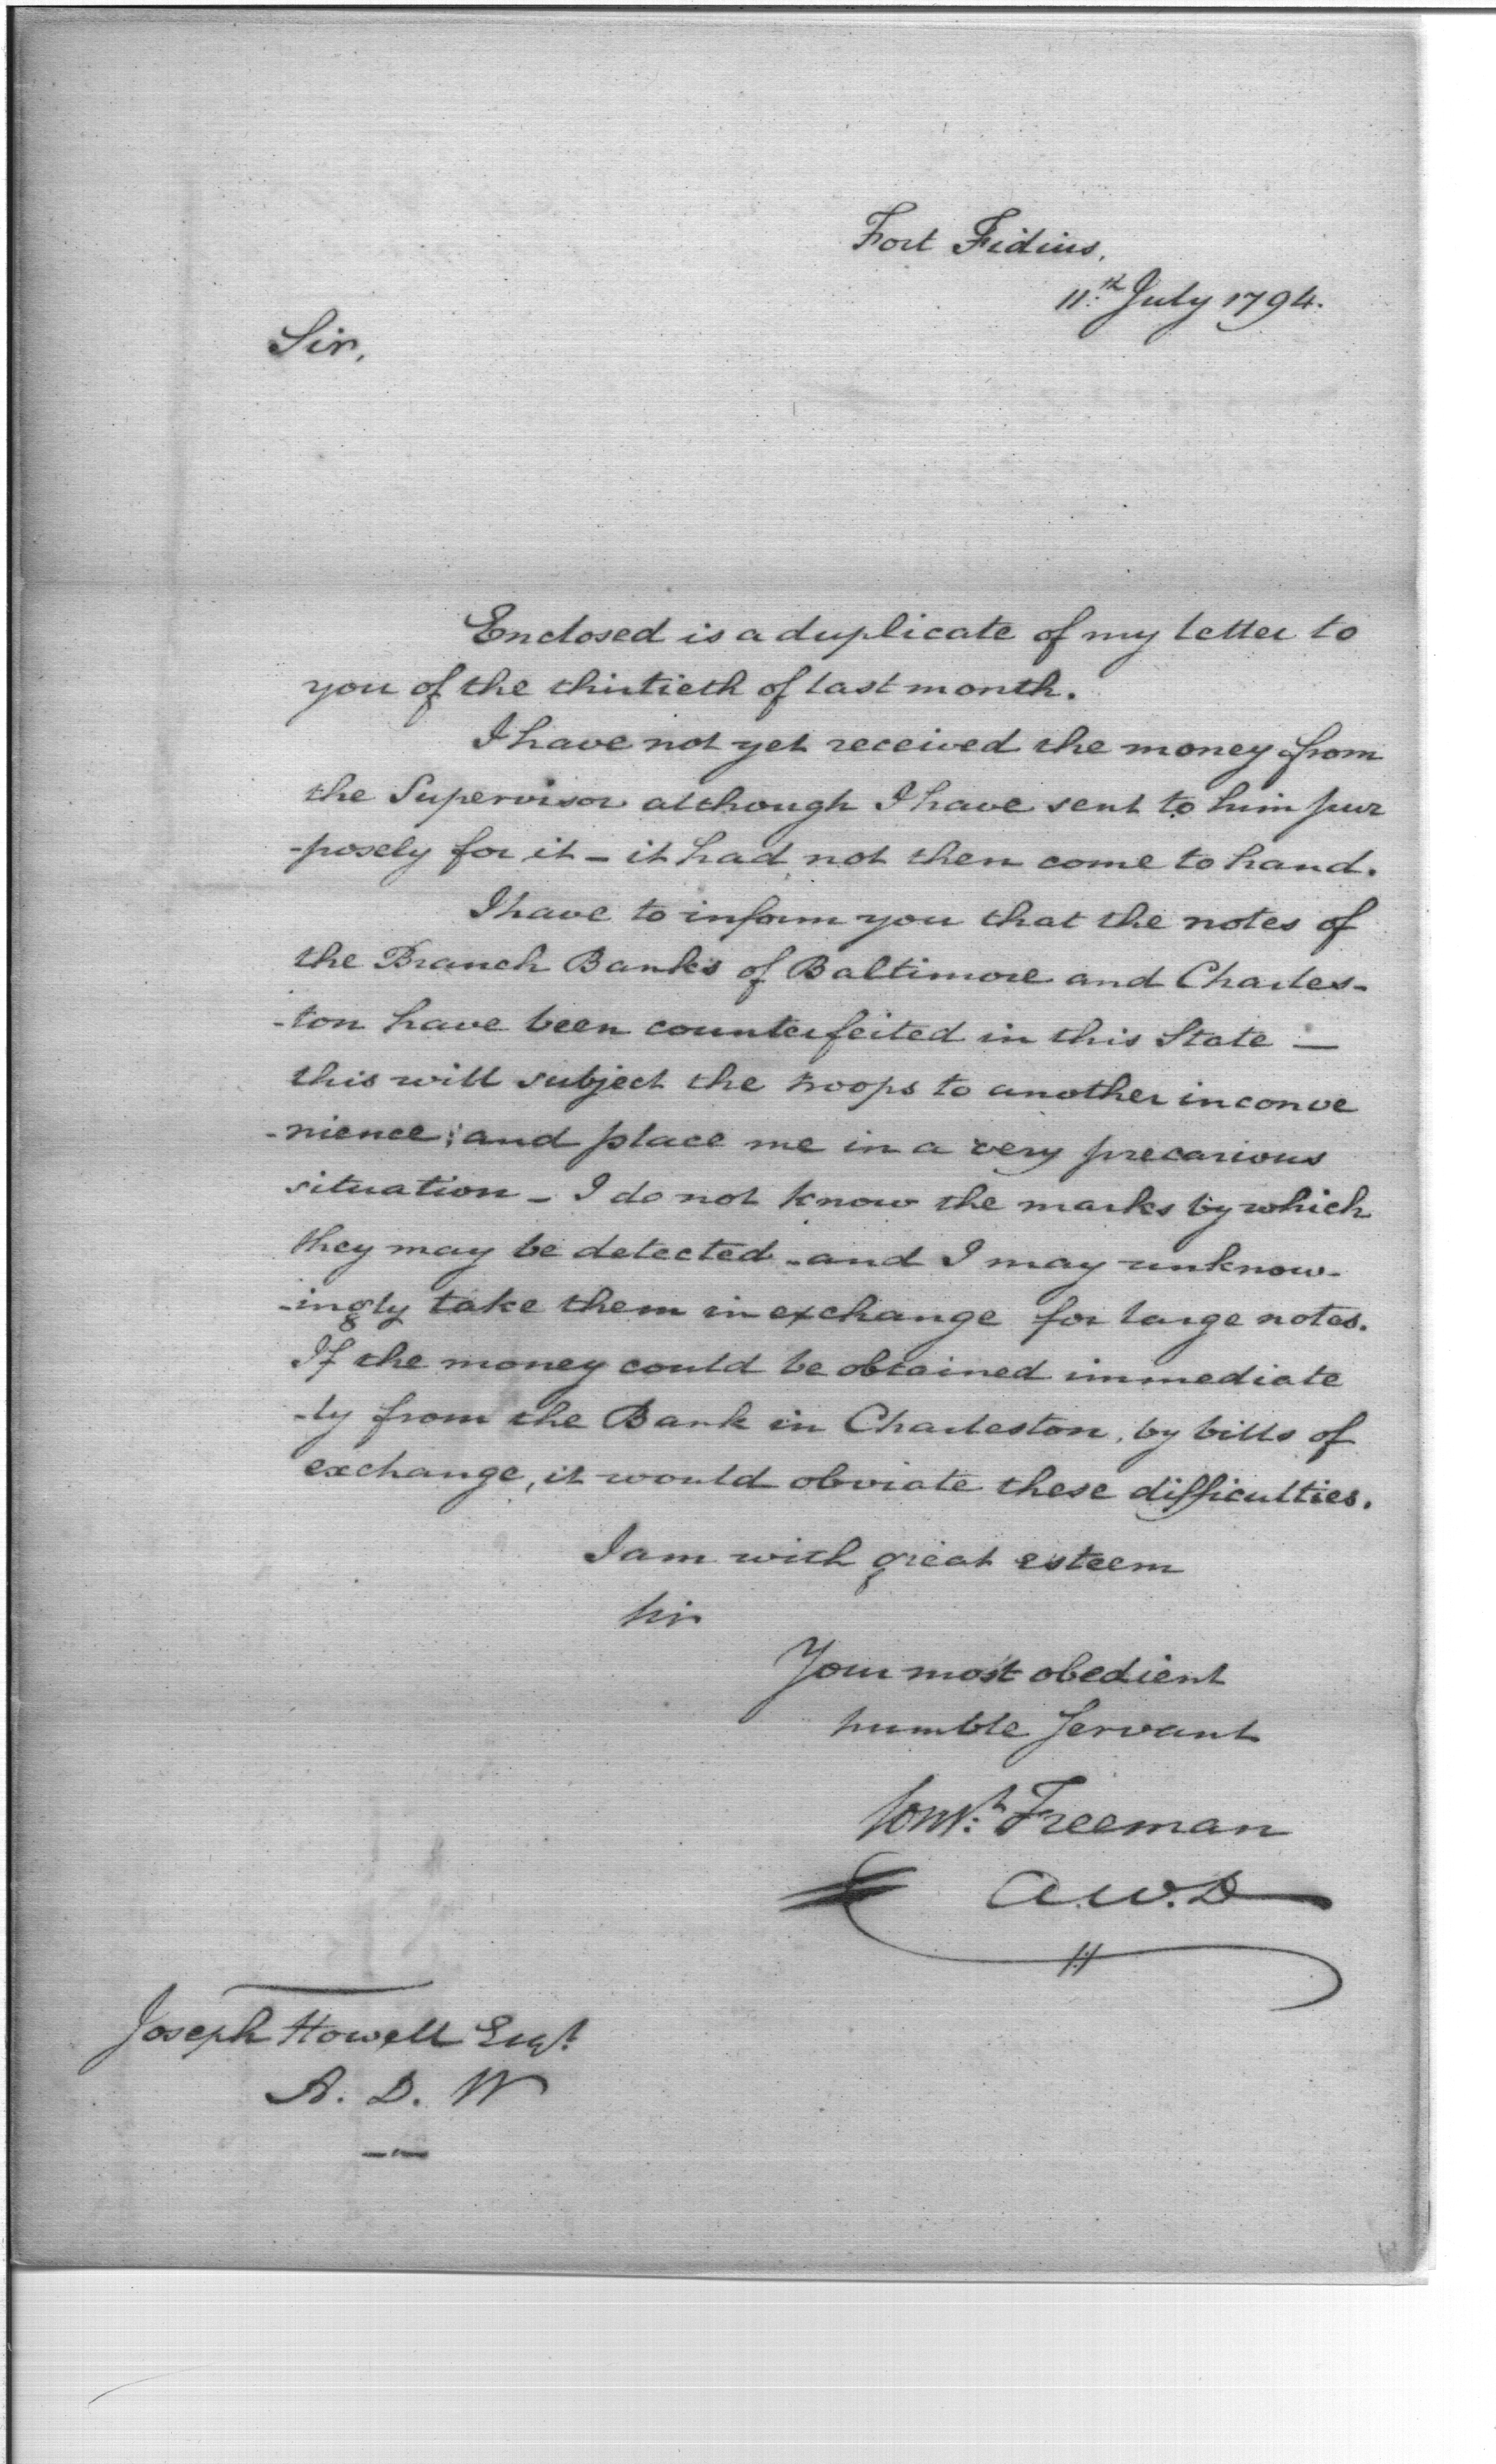 Fort Fidius,
11th July 1794.
Sir,
Enclosed is a duplicate of my letter to
you of the thirtieth of last month.
I have not yet received the money from
the Supervisor although I have sent to him pur
-posely for it - it had not then come to hand.
I have to inform you that the notes of
the Branch Banks of Baltimore and Charles-
-ton have been counterfeited in this State —
this will subject the troops to another inconve
-nience; and place me in a very precarious
situation - I do not know the marks by which
they may be detected - and I may unknow-
-ingly take them in exchange for large notes.
If the money could be obtained immediate
-ly from the Bank in Charleston, by bills of
exchange, it would obviate these difficulties.
I am with great esteem
Sir
Your most obedient
humble Servant
Const. Freeman
A.W.D
Joseph Howell Esqr.
A. D. W